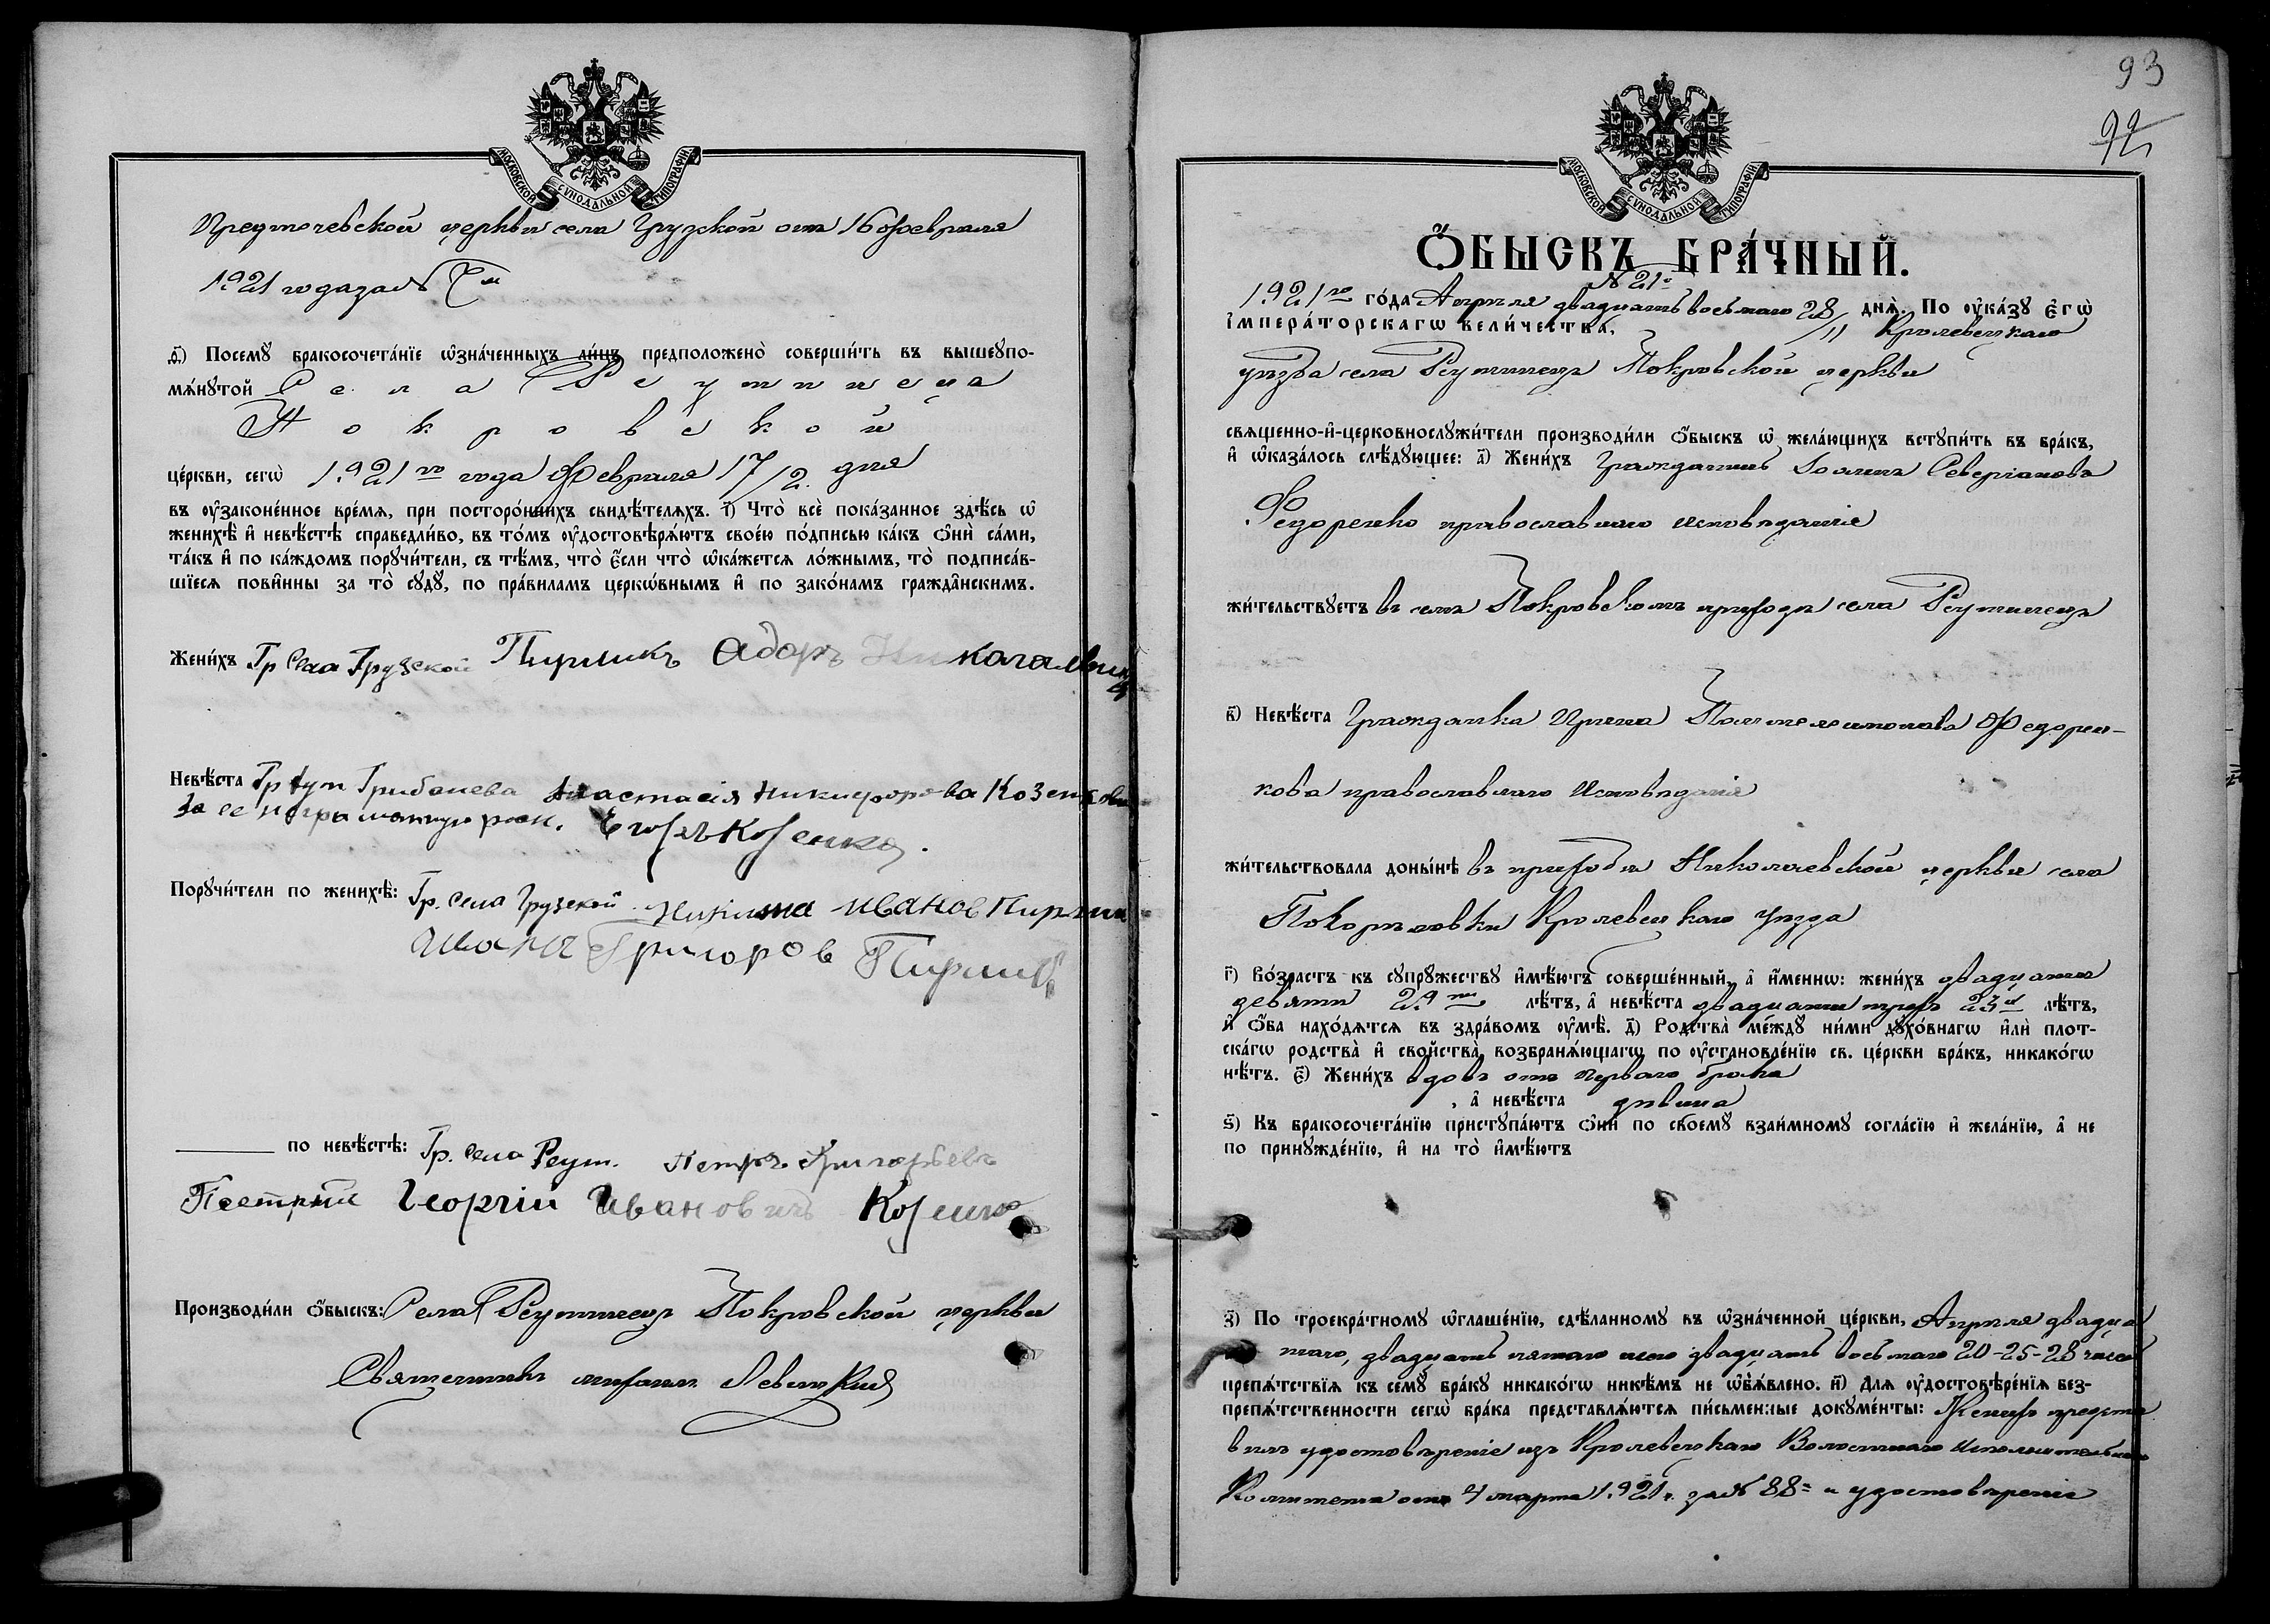 МОСКОВСКОЙ СѴНОДАЛЬНОЙ ТИПОГРАФІИ
Предтечевской церкви села Грузской отъ 16 февраля
1921 года за №
д҃) Посемꙋ̀ бракосочета́нїе ѡ҆зна́ченныхъ ли́цъ предположено̀ соверши́ть въ вышеꙋпо-
мѧ́нꙋтой Села Реутинеца
Покровской
це́ркви, сегѡ̀ 1921го года Февраля 17/2. дня
въ ᲂу҆законе́нное вре́мѧ, при посторо́ннихъ свидѣ́телѧхъ. і҃) Что̀ всѐ пока́занное здѣ́сь ѡ҆
женихѣ̀ и҆ невѣ́стѣ справедли́во, въ то́мъ ᲂу҆достовѣрѧ́ютъ свое́ю по́дписью ка́къ ѻ҆нѝ са́ми,
та́къ и҆ по ка́ждомъ порꙋчи́тели, съ тѣ́мъ, что̀ є҆́сли что̀ ѡ҆ка́жетсѧ ло́жнымъ, то̀ подписа́в-
шїесѧ пови́нны за то̀ сꙋдꙋ̀, по пра́виламъ церко́внымъ и҆ по зако́намъ гражда́нскимъ.
Жени́хъ Гр Села Грузской Пирликъ Адоръ
Невѣ́ста Гр Анастасія Никифорова Козенкова
За ее неграмотную
Порꙋчи́тели по женихѣ̀: Гр. Села Грузской Никита Иванов
Григоров
по невѣ́стѣ: Гр. Села Реут. Петръ Григорьевъ
Георгій Ивановичъ
Производи́ли ѻ҆́быскъ: Села Реутинецъ Покровской церкви
Священникъ Левицкій
93
92
МОСКОВСКОЙ СѴНОДАЛЬНОЙ ТИПОГРАФІИ
Ѻ҆́БЫСКЪ БРА́ЧНЫЙ.
№ 21й
1921го го́да Апрѣля двадцать восьмаго 28/11 днѧ̀. По ᲂу҆ка́зꙋ Є҆гѡ̀
І҆мпера́торскагѡ Вели́чества, Кролевецкаго
уѣзда села Реутинецъ Покровской церкви
свѧщенно-и҆-церковнослꙋжи́тели производи́ли ѻ҆́быскъ ѡ҆ жела́ющихъ встꙋпи́ть въ бра́къ,
и҆ ѡ҆каза́лось слѣ́дꙋющее: а҃) Жени́хъ Гражданинъ Іоаннъ Северіановъ
Федоренко православнаго исповѣданіе
жи́тельствꙋетъ въ селѣ Покровскомъ приходѣ села Реутинецъ
в҃) Невѣ́ста Гражданка Ирина Пантелеимонова Федорен-
кова православнаго Исповѣданія
жи́тельствовала доны́нѣ въ приходѣ Николаевской церкви села
Покориловки Кролевецкаго уѣзда
г҃) Во́зрастъ къ сꙋпрꙋ́жествꙋ и҆мѣ́ютъ соверше́нный, а҆ и҆́меннѡ: жени́хъ двадцати
девяти 29ти лѣ́тъ, а҆ невѣ́ста двадцати трехъ 23х лѣ́тъ,
и҆ ѻ҆́ба нахо́дѧтсѧ въ здра́вомъ ᲂу҆мѣ̀. д҃) Родства̀ ме́ждꙋ ни́ми дꙋхо́внагѡ и҆лѝ плот-
ска́гѡ родства̀ и҆ свойства̀, возбранѧ́ющагѡ по ᲂу҆становле́нїю св. це́ркви бра́къ, никако́гѡ
нѣ́тъ. є҃) Жени́хъ вдовъ отъ перваго брака
, а҆ невѣ́ста дѣвица
ѕ҃) Къ бракосочета́нїю пристꙋпа́ютъ ѻ҆нѝ по своемꙋ̀ взаи́мномꙋ согла́сїю и҆ жела́нїю, а҆ не
по принꙋжде́нїю, и҆ на то̀ и҆мѣ́ютъ
з҃) По троекра́тномꙋ ѡ҆глаше́нїю, сдѣ́ланномꙋ въ ѡ҆зна́ченной це́ркви, Апрѣля двадца
таго, двадцать пятаго двадцать восьмаго 20-25-28 числа
препѧ́тствїѧ къ семꙋ̀ бра́кꙋ никако́гѡ никѣ́мъ не ѡ҆б̾ѧ́влено. и҃) Для ᲂу҆достовѣре́нїѧ без-
препѧ́тственности сегѡ̀ бра́ка представлѧ́ютсѧ пи́сьменные докꙋме́нты: Женихъ предста
вилъ удостовѣреніе изъ Кролевецкаго Волостнаго Исполнительнаго
Комитета отъ 4 марта 1921г. за № 88= и удостовѣреніе